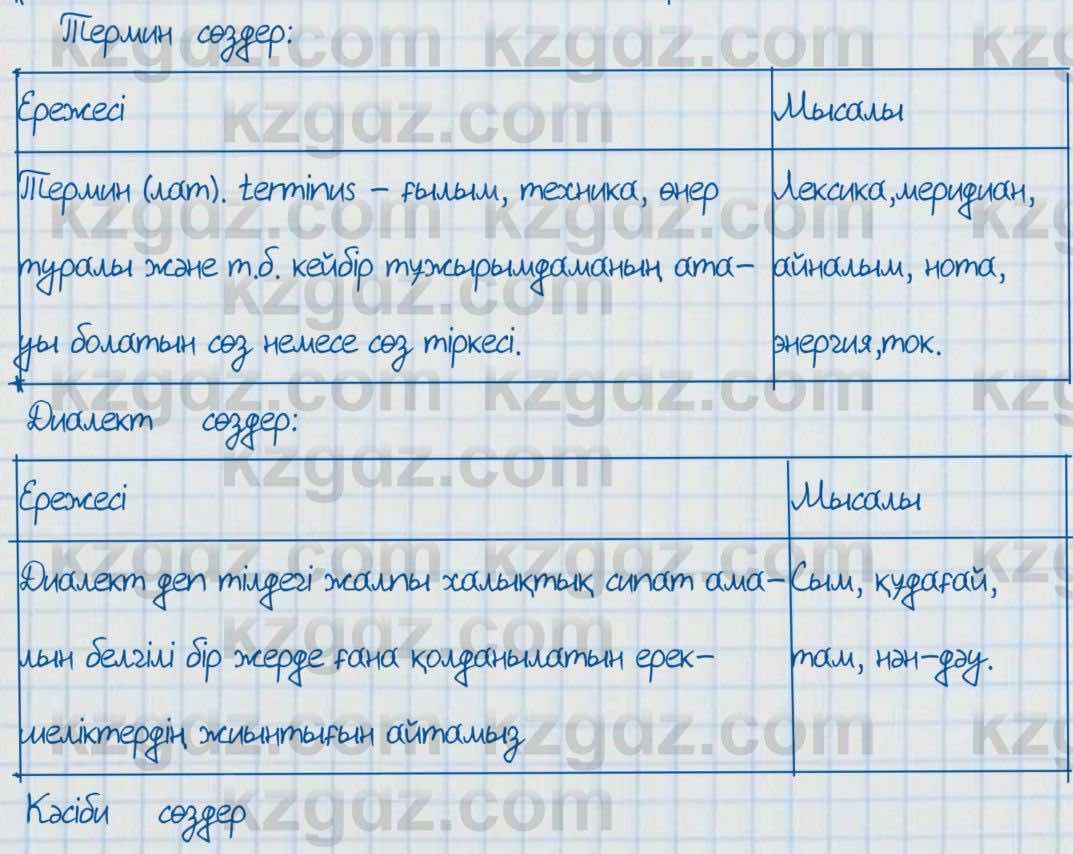 Термин сөздер:
Ережесі Мысалы
Термин (лат). terminus – ғылым, техника, өнер Лексика,меридиан,
туралы және т.б. кейбір тұжырымдаманың ата- айналым, нота,
уы болатын сөз немесе сөз тіркесі. энергия,ток.
Диалект сөздер:
Ережесі Мысалы
Диалект деп тілдегі жалпы халықтық сипат ама- Сым, құдағай,
лын белгілі бір жерде ғана қолданылатын ерек- там, нән-дәу.
шеліктердің жиынтығын айтамыз
Кәсіби сөздер